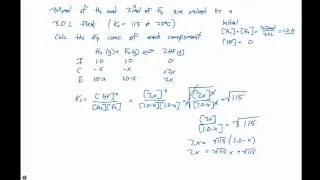 3.0mol of H₂ and 3.0mol of F₂ are mixed in a
3.0L flask (Kc = 115 at 70°C)
Calc the Eq conc of each component
Initial
[H₂] = [F₂] = 3.0mol / 3.0L = 1.0 M
[HF] = 0
H₂(g) + F₂(g) ⇌ 2HF(g)
I 1.0 1.0 0
C -x -x +2x
E 1.0-x 1.0-x 2x
Kc = [HF]² / [H₂][F₂] = [2x]² / [1.0-x][1.0-x] = √[2x]² / √[1.0-x]² = √115
[2x] / [1.0-x] = √115
2x = √115 (1.0-x)
2x = √115 - √115x